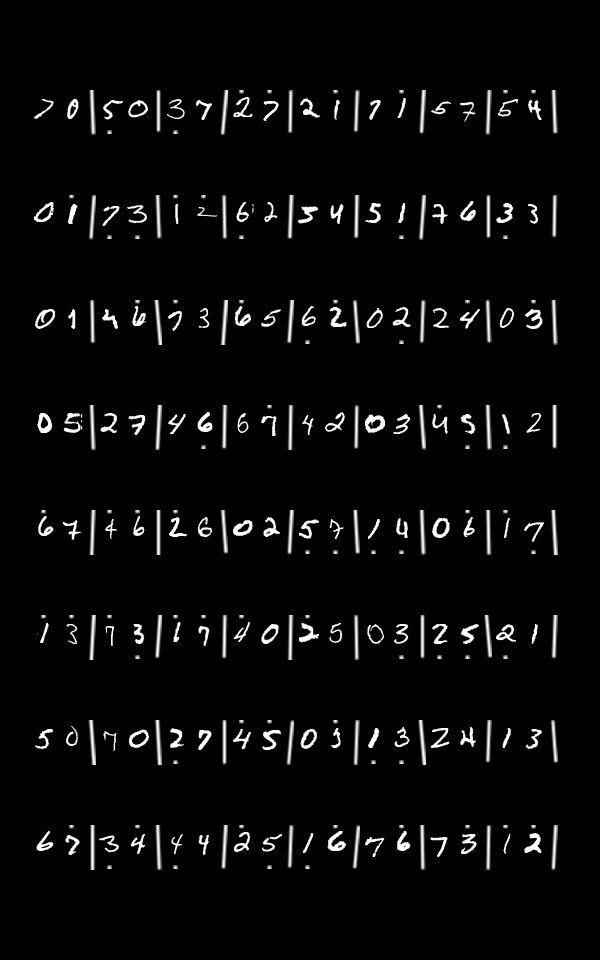 7 0 | 5̣ 0 | 3̣ 7 | 2̇ 7̇ | 2 1̇ | 7 1̇ | 5 7 | 5̇ 4̇ |
0 1̇ | 7̣ 3̣ | 1̇ 2̇ | 6̣ 2 | 3 4 | 5 1̣ | 7 6 | 3̣ 3 |
0 1 | 4 6̇ | 7̇ 3 | 6̇ 5 | 6̣ 2̇ | 0 2̣ | 2 4̇ | 0 3̇ |
0 5 | 2 7 | 4 6̣ | 6 7̇ | 4 2 | 0 3 | 4̇ 5̣ | 1̣ 2 |
6̇ 7 | 4̇ 6̇ | 2̇ 6 | 0 2 | 5̣ 7̣ | 1̣ 4̣ | 0 6̇ | 1̇ 7̣ |
1̇ 3̇ | 7̇ 3̣ | 1̇ 7̇ | 4̇ 0 | 2̇ 5 | 0 3̣ | 2̣ 5̣ | 2̣ 1 |
5 0̇ | 7 0 | 2̣ 7 | 4̇ 5̇ | 0 3̇ | 1̣ 3̣ | 2 4 | 1 3 |
6 7̇ | 3̣ 4̇ | 4̣ 4 | 2̇ 5̣ | 1̣ 6̇ | 7 6̇ | 7 3̇ | 1̇ 2̇ |